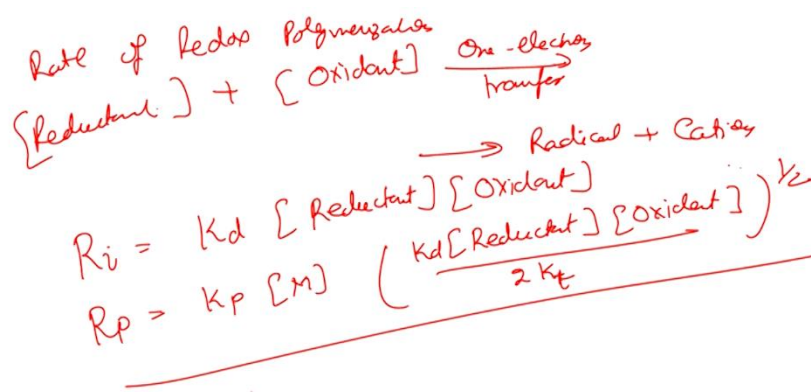 Rate of Redox Polymerization
[Reductant] + [Oxidant] One-electron transfer →
→ Radical + Cation
Ri = Kd [Reductant] [Oxidant]
Rp = Kp [M] (Kd [Reductant] [Oxidant] / 2 Kt)^1/2